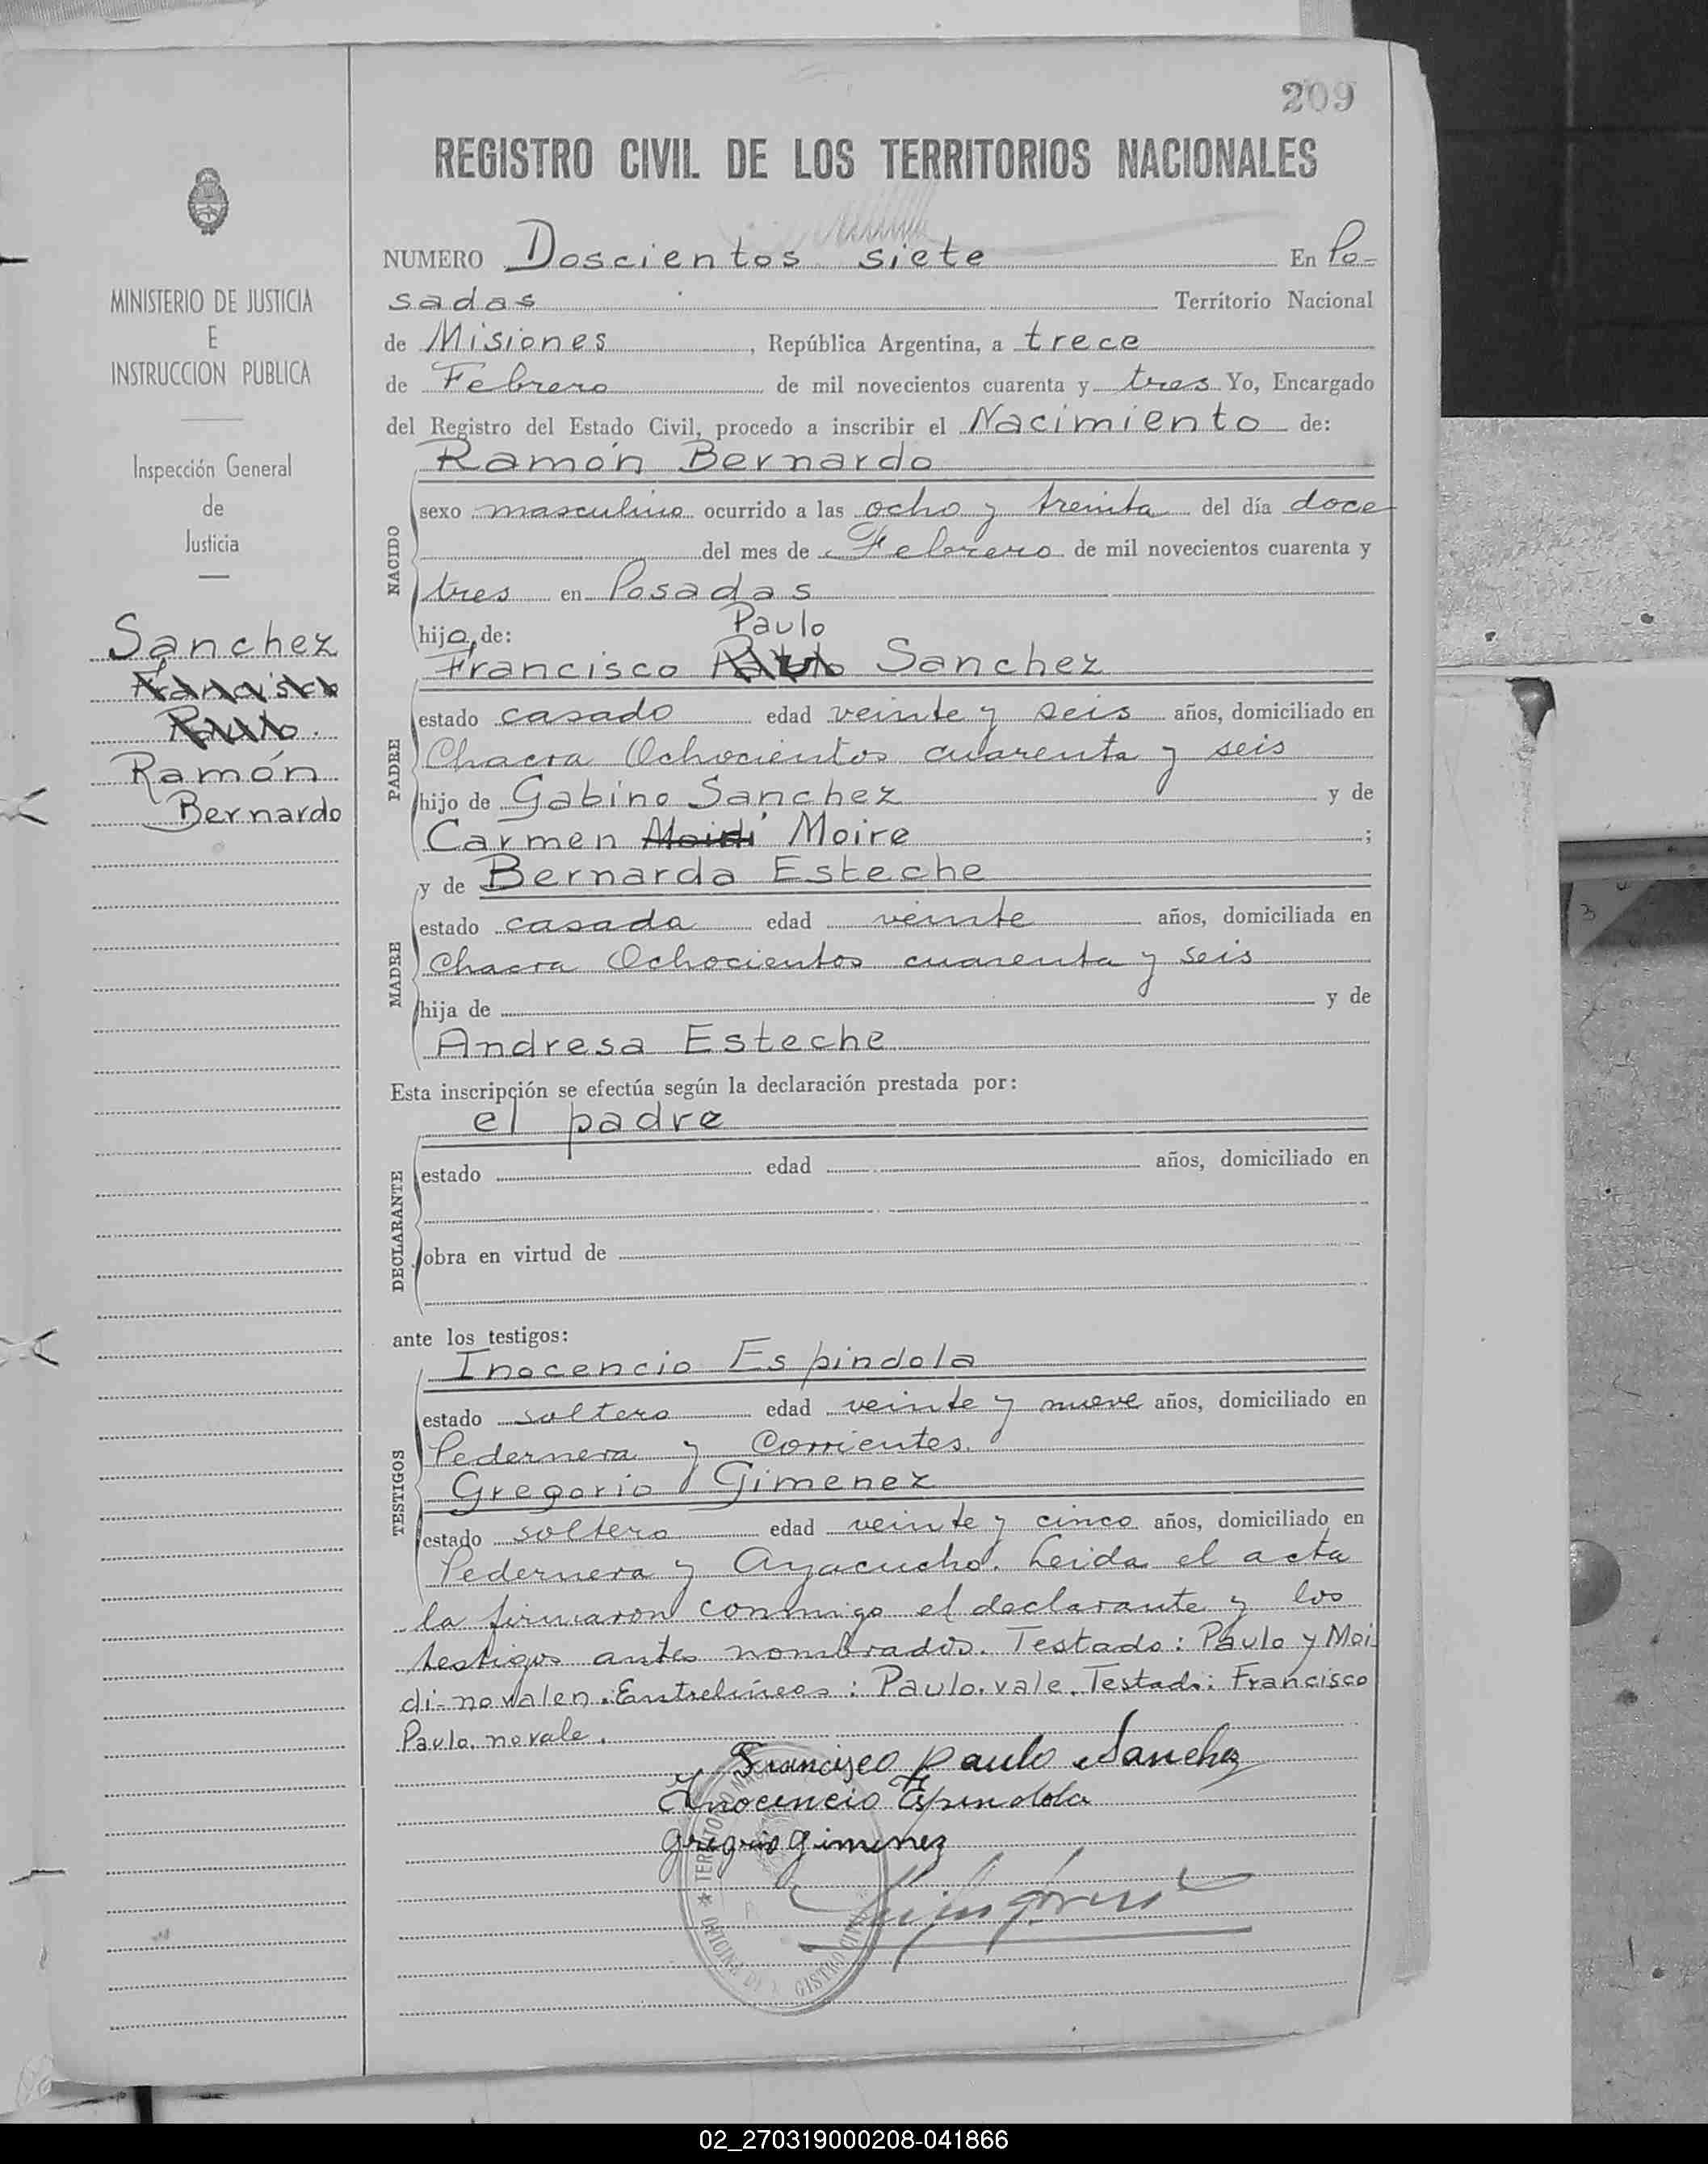 209
REGISTRO CIVIL DE LOS TERRITORIOS NACIONALES
MINISTERIO DE JUSTICIA
E
INSTRUCCION PUBLICA
Inspección General
de
Justicia
Sanchez
Francisco
Paulo.
Ramón
Bernardo
NUMERO Doscientos siete En Po-
sadas Territorio Nacional
de Misiones, República Argentina, a trece
de Febrero de mil novecientos cuarenta y tres Yo, Encargado
del Registro del Estado Civil, procedo a inscribir el Nacimiento de:
Ramón Bernardo
NACIDO
sexo masculino ocurrido a las ocho y treinta del día doce
del mes de Febrero de mil novecientos cuarenta y
tres en Posadas
hijo de:
Paulo
Francisco Sanchez
PADRE
estado casado edad veinte y seis años, domiciliado en
Chacra Ochocientos cuarenta y seis
hijo de Gabino Sanchez y de
Carmen Moidi Moire;
y de Bernarda Esteche
MADRE
estado casada edad veinte años, domiciliada en
Chacra Ochocientos cuarenta y seis
hija de y de
Andresa Esteche
Esta inscripción se efectúa según la declaración prestada por:
el padre
DECLARANTE
estado edad años, domiciliado en
obra en virtud de
ante los testigos:
Inocencio Espindola
TESTIGOS
estado soltero edad veinte y nueve años, domiciliado en
Pedernera y Corrientes.
Gregorio Gimenez
estado soltero edad veinte y cinco años, domiciliado en
Pedernera y Ayacucho. Leida el acta
la firmaron conmigo el declarante y los
testigos antes nombrados. Testado: Paulo y Moi
di-no valen. Entrelíneas: Paulo. vale. Testado: Francisco
Paulo. no vale.
Francisco paulo Sanchez
Inocencio Espindola
gregorio gimenez
02_270319000208-041866